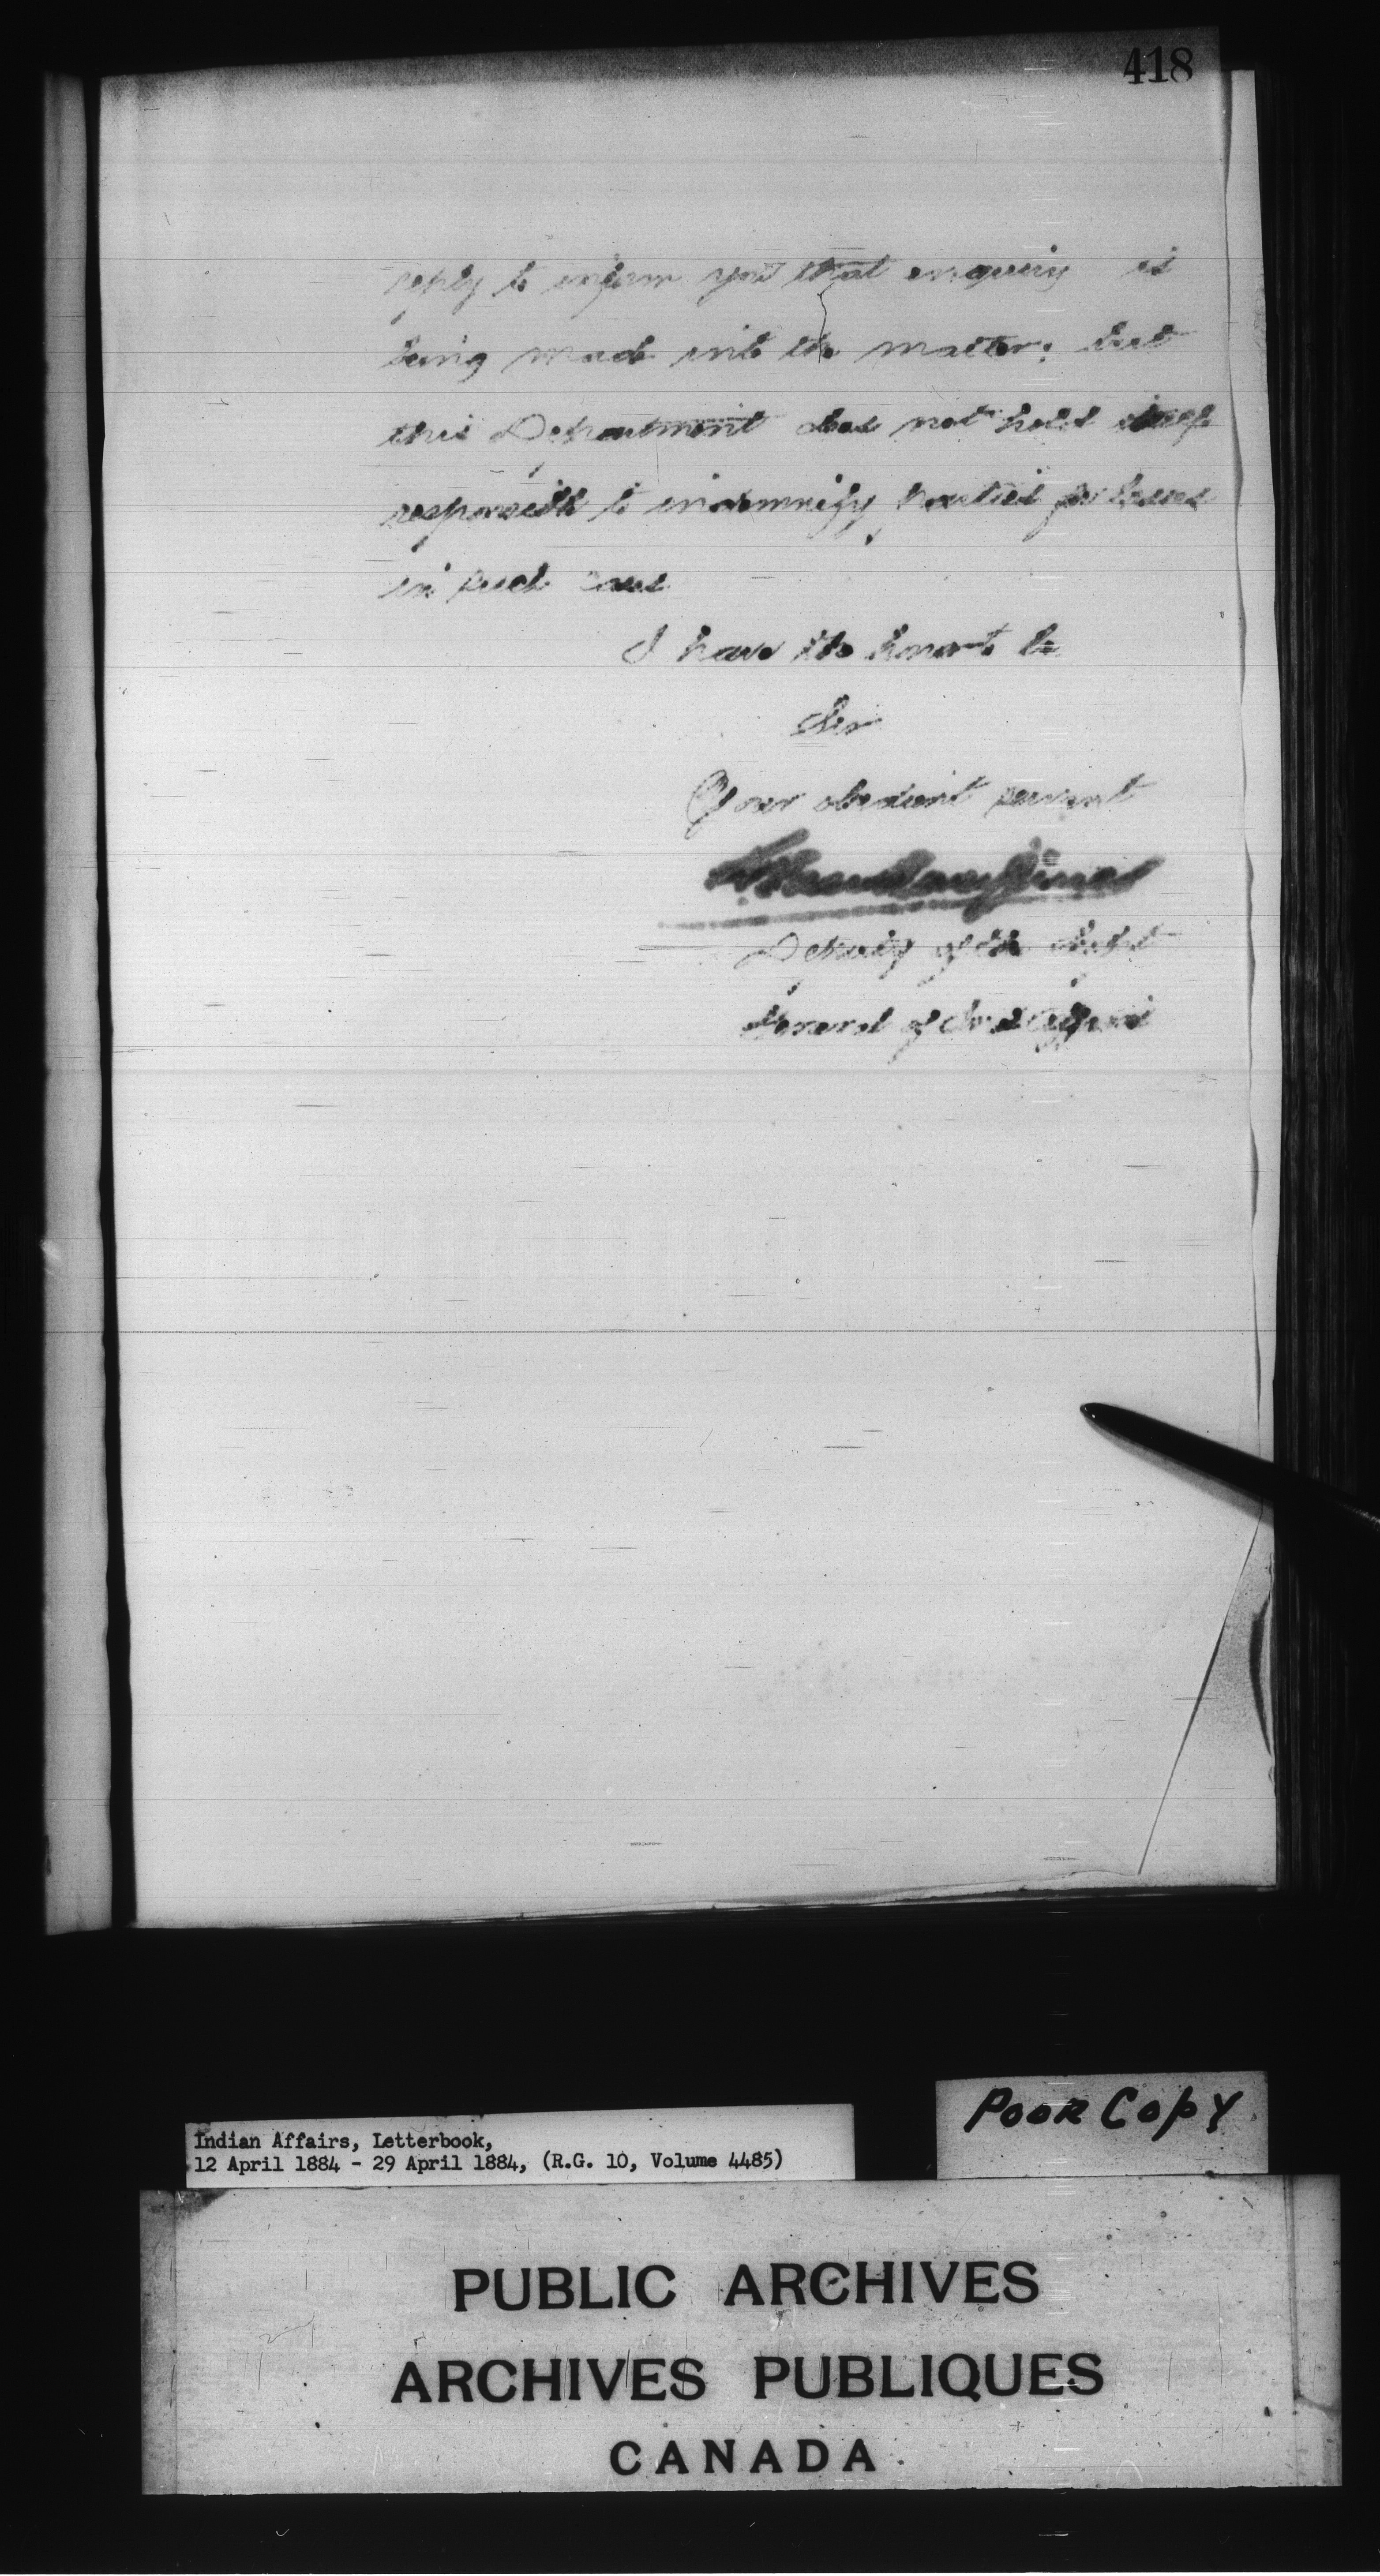 418
reply to inform you that enquiry is
being made into the matter; but
this Department does not hold itself
responsible to indemnify parties for losses
in such cases
I have the honor to be
Sir
Your obedient servant
Deputy of the Supt
General of Ind Affairs
Poor Copy
Indian Affairs, Letterbook,
12 April 1884 - 29 April 1884, (R.G. 10, Volume 4485)
PUBLIC ARCHIVES
ARCHIVES PUBLIQUES
CANADA